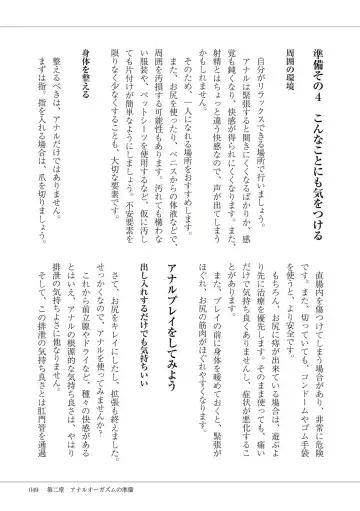 準備その4　こんなことにも気をつける
周囲の環境
自分がリラックスできる場所で行いましょう。
アナルは緊張すると開きにくくなるばかりか、感
覚も鈍くなり、快感が得られにくくなります。また、
射精とはちょっと違う快感なので、声が出てしまう
かもしれません。
そのため、一人になれる場所をおすすめします。
また、お尻を使ったり、ペニスからの体液などで、
周囲を汚損する可能性もあります。汚れても構わな
い服装や、ペットシーツを使用するなど、仮に汚し
ても片付けが簡単なようにしましょう。不安要素を
限りなく少なくすることも、大切な要素です。
身体を整える
整えるべきは、アナルだけではありません。
まずは指。指を入れる場合は、爪を切りましょう。
直腸内を傷つけてしまう場合があり、非常に危険
です。また、切っていても、コンドームやゴム手袋
を使うと、より安全です。
もちろん、お尻に痔が出来ている場合は、遊ぶよ
り先に治療を優先します。そのまま使っても、痛い
だけで気持ち良くありませんし、症状が悪化するこ
とがあります。
また、プレイの前に身体を暖めておくと、緊張が
ほぐれ、お尻の筋肉がほぐれやすくなります。
アナルプレイをしてみよう
出し入れするだけでも気持ちいい
さて、お尻をキレイにしたし、拡張も終えました。
せっかくなので、アナルを使ってみませんか？
これから前立腺やドライなど、種々の快感がある
とはいえ、アナルの根源的な気持ち良さは、やはり
排泄の気持ちよさに他なりません。
そして、この排泄の気持ち良さとは肛門管を通過
049　第二章　アナルオーガズムの準備